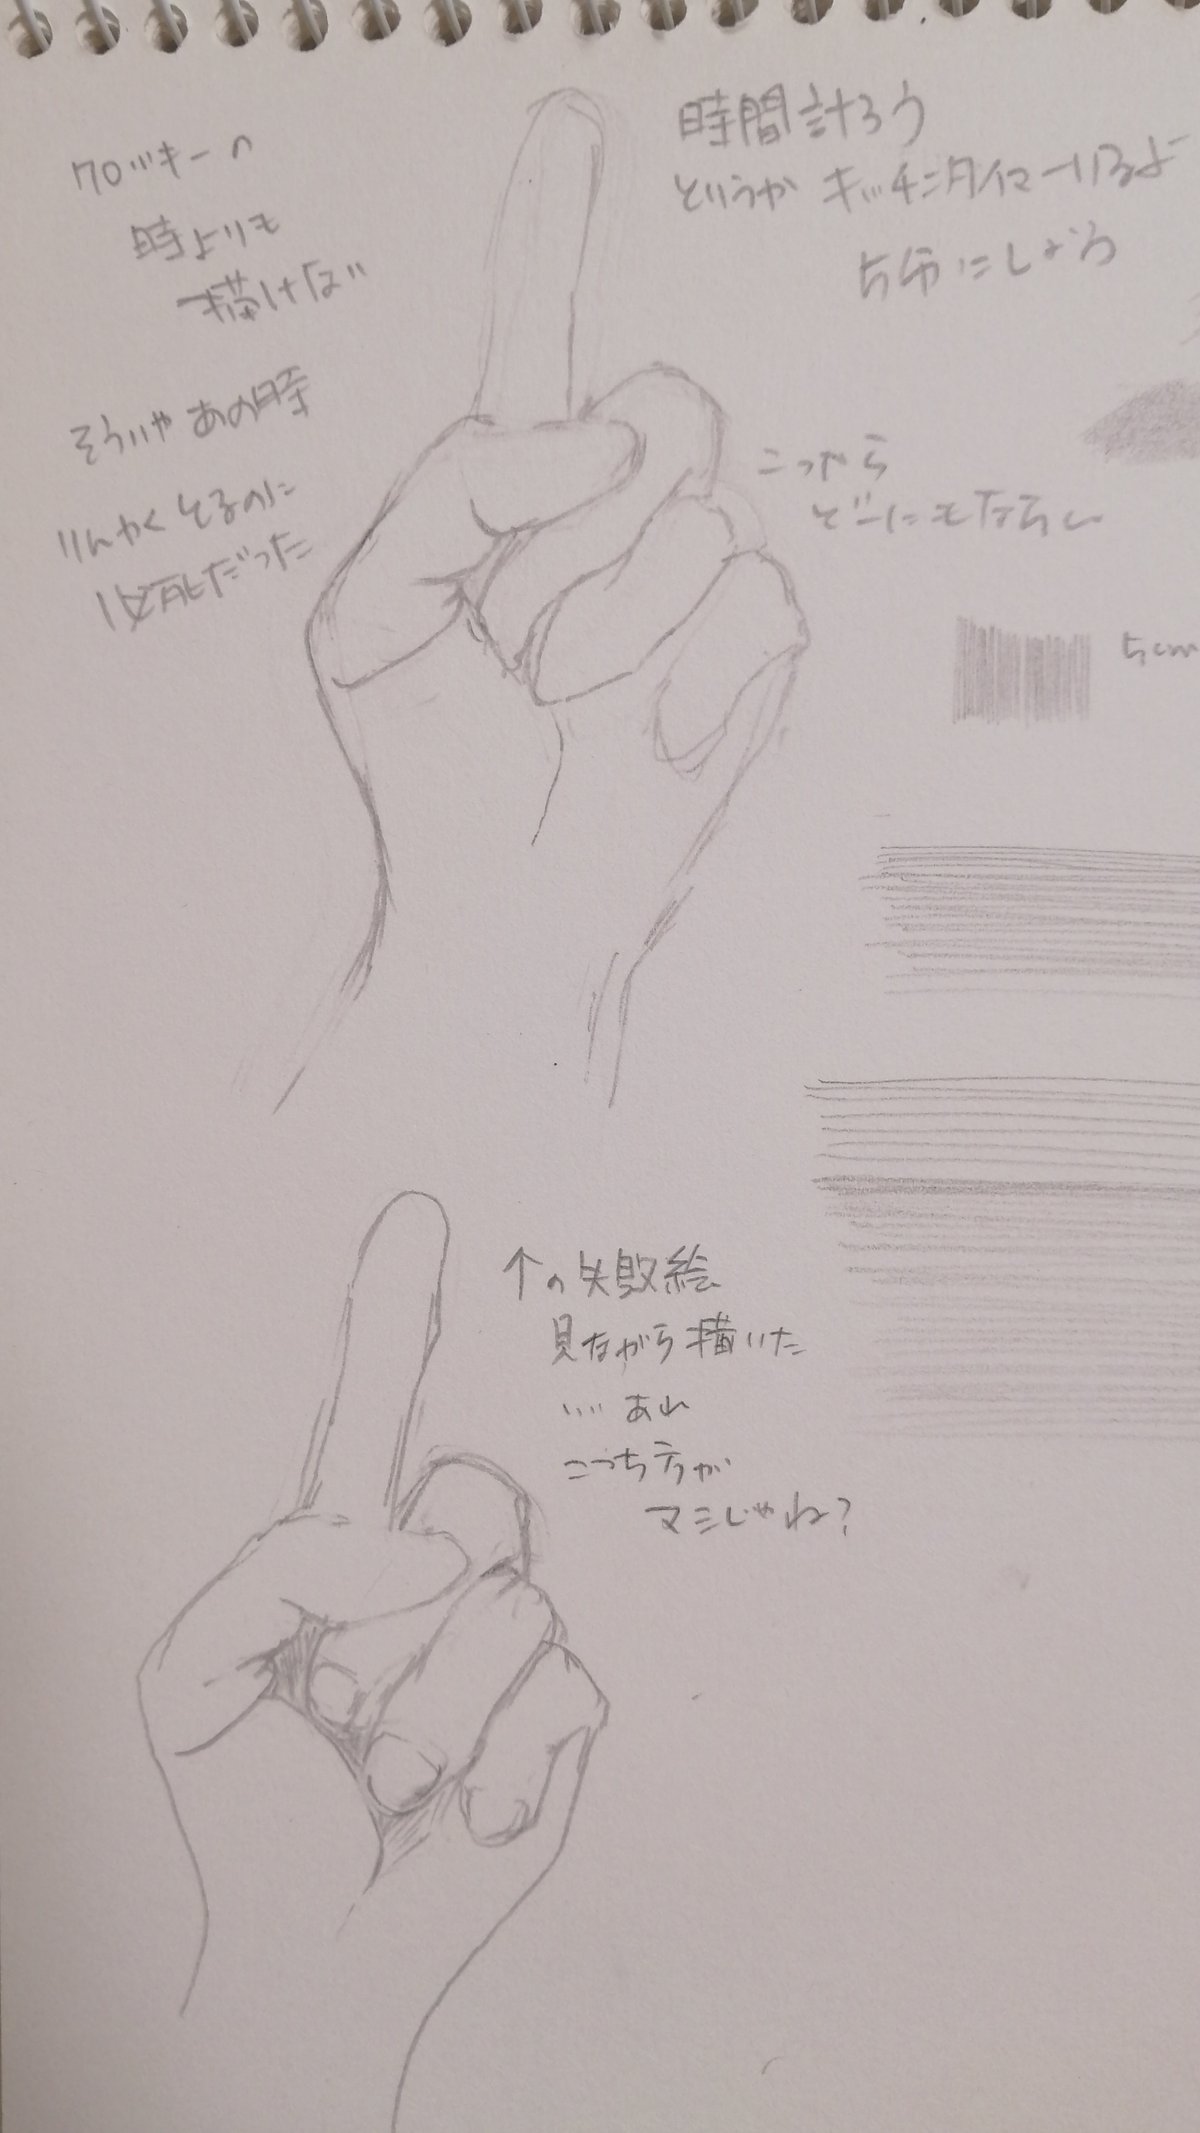 クロッキーの
時よりも
描けば
そういやあの時
りんかくとるのに
必死だった
時間計ろう
というか キッチンタイマーいるよ
5分にしよう
こっから
どーにもならん
5cm
↑の失敗絵
見ながら描いた
…あれ
こっち方が
マシじゃね?